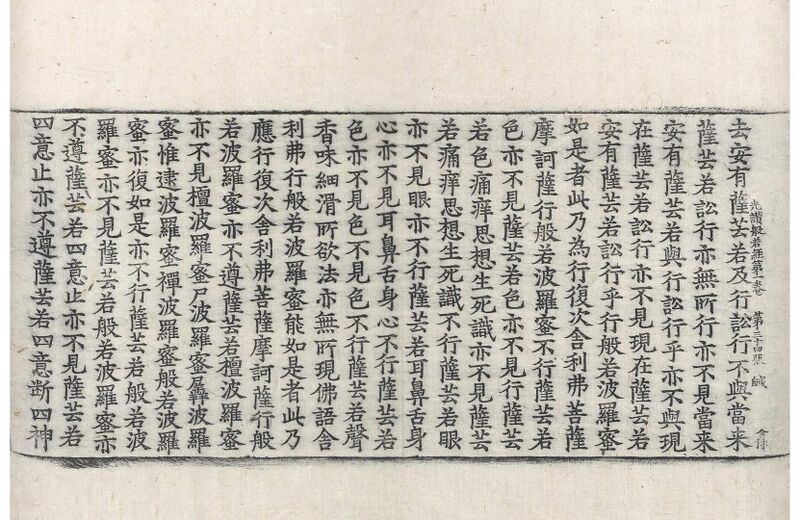 光讚般若經第二卷 第二十四張 鹹
去安有薩芸若及行訟行不與當来
薩芸若訟行亦無所行亦不見當来
安有薩芸若與行訟行乎亦不與現
在薩芸若訟行亦不見現在薩芸若
安有薩芸若訟行乎行般若波羅蜜
如是者此乃為行復次舍利弗菩薩
摩訶薩行般若波羅蜜不行薩芸若
色亦不見薩芸若色亦不見行薩芸
若色痛痒思想生死識亦不見薩芸
若痛痒思想生死識不行薩芸若眼
亦不見眼亦不行薩芸若耳鼻舌身
心亦不見耳鼻舌身心不行薩芸若
色亦不見色不見色不行薩芸若聲
香味細滑所欲法亦無所現佛語舍
利弗行般若波羅蜜能如是者此乃
應行復次舍利弗菩薩摩訶薩行般
若波羅蜜亦不遵薩芸若檀波羅蜜
亦不見檀波羅蜜尸波羅蜜羼波羅
蜜惟逮波羅蜜禪波羅蜜般若波羅
蜜亦復如是亦不行薩芸若般若波
羅蜜亦不見薩芸若般若波羅蜜亦
不遵薩芸若四意止亦不見薩芸若
四意止亦不遵薩芸若四意斷四神